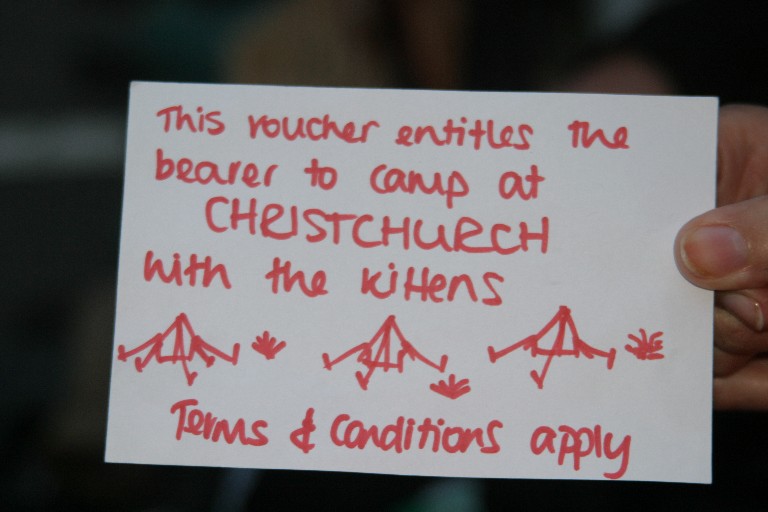 This voucher entitles the
bearer to camp at
CHRISTCHURCH
with the kittens
Terms & Conditions apply